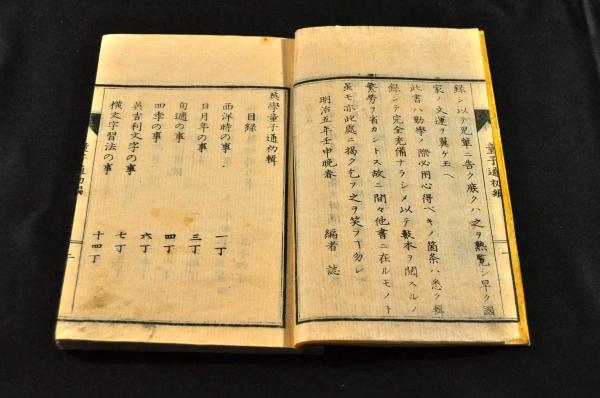 録シ以テ児輩ニ告ク庶クハ之ヲ熟覧シ早ク國
家ノ文運ヲ翼ケヨヘ
此書ハ勤學ノ際必用心得ベキノ箇条ハ悉ク輯
録シテ完全充備ナラシメ以テ数本ヲ閲スルノ
繁労ヲ省カントス故ニ間々他書ニ在ルモノト
虽モ亦此處ニ掲ク乞フ之ヲ笑フ勿レ
明治五年壬申晩春 編者 誌
童子通初編
一
英學童子通初輯
目録
西洋時の事 一丁
日月年の事 三丁
旬週の事 四丁
四季の事 六丁
英吉利文字の事 七丁
横文字習法の事 十四丁